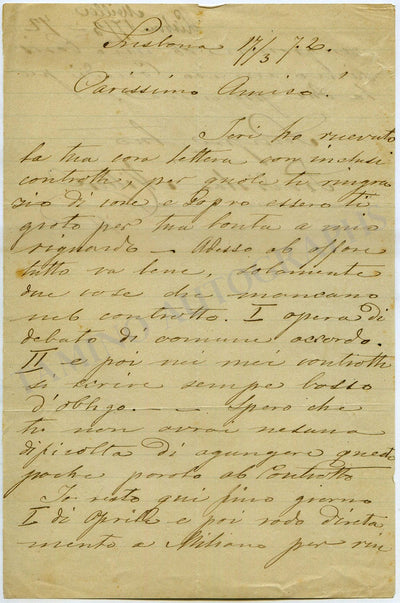 Lisbona 17/3 72.
Carissimo Amico!
Ieri ho ricevuto
la tua cara lettera con inclusi
controtti, per quale ti ringra
zio di core e sapro essero ti
grato per tua bonta a mio
riguardo — Adesso al
tutto va bene, solamente
due cose di mancano
nel contratto. I opera di
debuto di comune accordo.
II e poi nei mei contratti
si scrive sempre basso
d'obligo. — Spero che
ti non avrai nesuna
dificolta di agungere queste
poche parole al Contratto
Io resto qui fino giorno
I di Aprile e poi vado direta
mento a Milano per
TAMINO AUTOGRAPHS